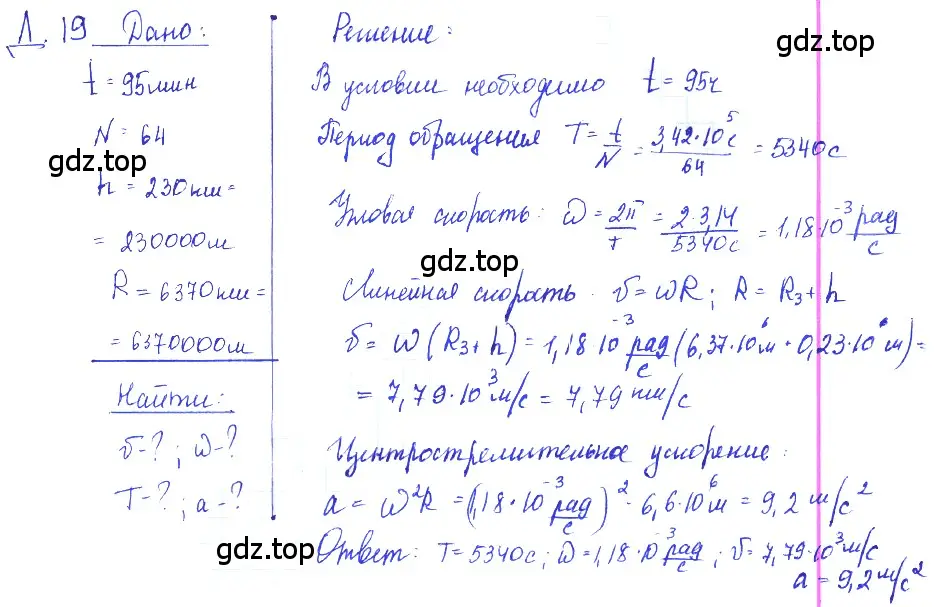 Л. 19 Дано:
t = 95 мин
N = 64
h = 230 км =
= 230000 м
R = 6370 км =
= 6370000 м
Найти:
v-?; ω-?
T-?; a-?
Решение:
В условии необходимо t = 95ч
Период обращения T = t/N = 3,42·10⁵с/64 = 5340с
Угловая скорость: ω = 2π/T = 2·3,14/5340с = 1,18·10⁻³ рад/с
Линейная скорость. v = ωR; R = R₃ + h
v = ω(R₃ + h) = 1,18·10⁻³ рад/с (6,37·10⁶м + 0,23·10⁶м) =
= 7,79·10³ м/с = 7,79 км/с
Центростремительное ускорение:
a = ω²R = (1,18·10⁻³ рад/с)² · 6,6·10⁶м = 9,2 м/с²
Ответ: T = 5340с; ω = 1,18·10⁻³ рад/с; v = 7,79·10³ м/с
a = 9,2 м/с²
gdz.top
gdz.top
gdz.top
gdz.top